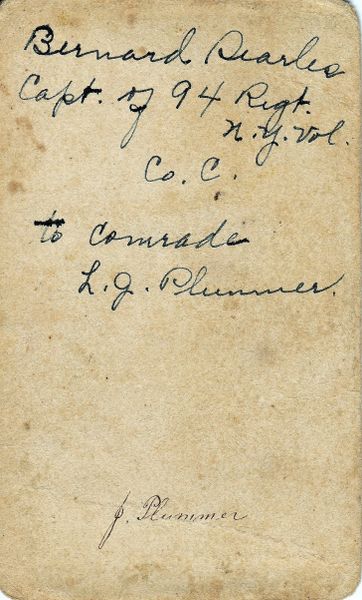 Bernard Searles
Capt. of 94 Regt.
N.Y. Vol.
Co. C.
to comrade
L. J. Plummer.
J. Plummer